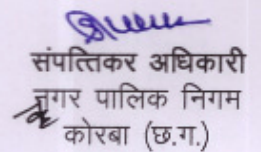 संपत्तिकर अधिकारी
नगर पालिक निगम
कोरबा (छ.ग.)